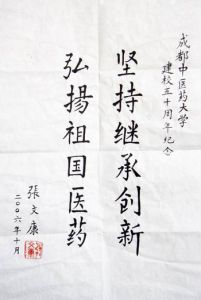 成都中医药大学
建校五十周年纪念
坚持继承创新
弘揚祖国医药
張文康
二〇〇六年十月